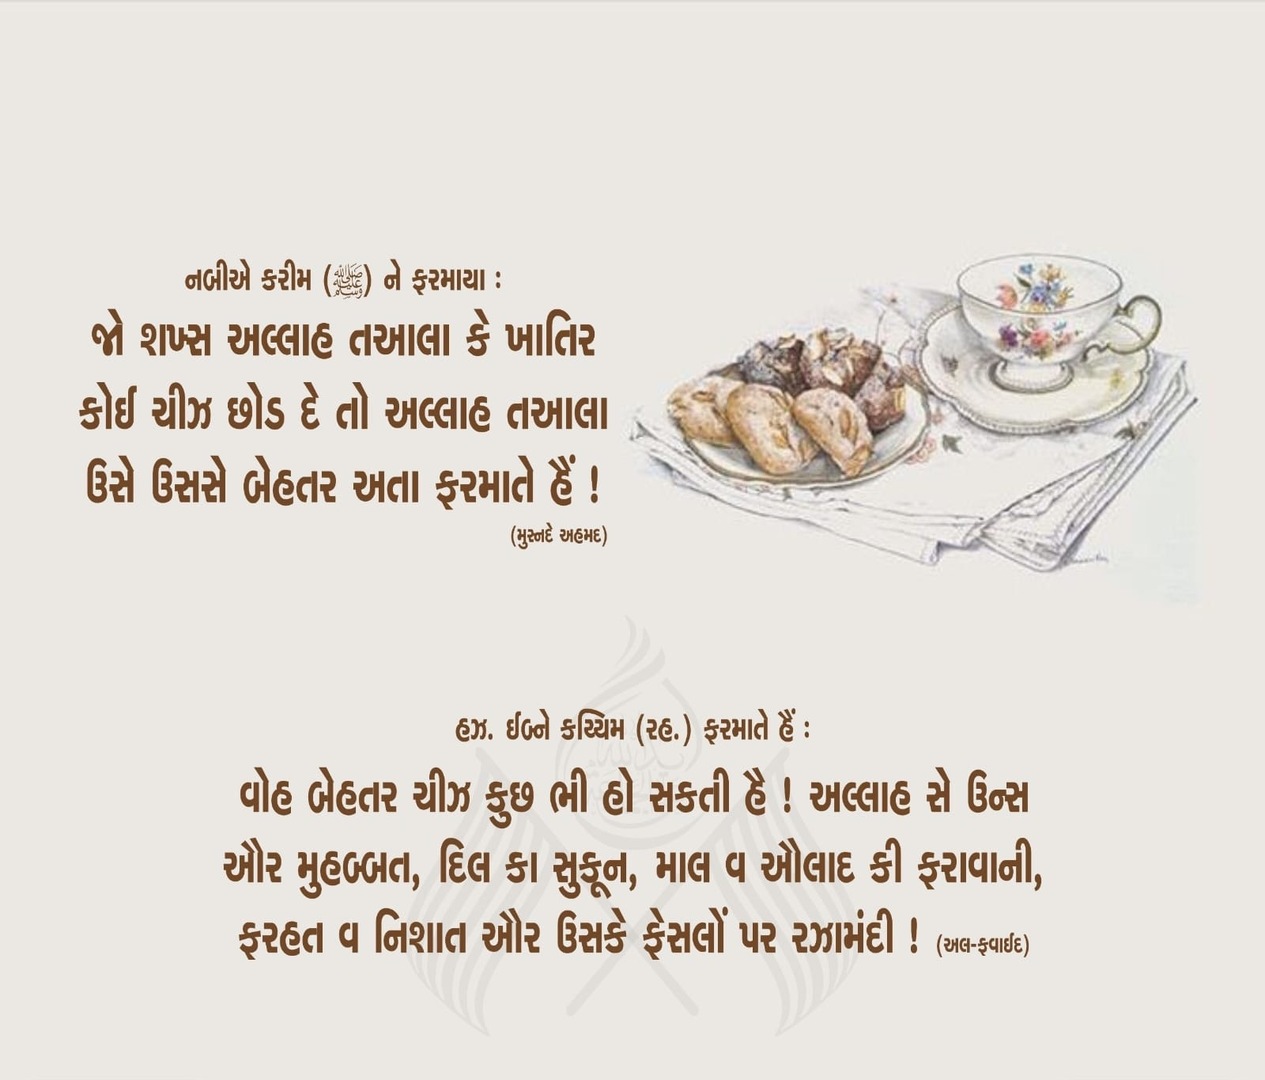 નબીએ કરીમ (ﷺ) ને ફરમાયા :
જો શખ્સ અલ્લાહ તઆલા કે ખાતિર
કોઈ ચીઝ છોડ દે તો અલ્લાહ તઆલા
ઉસે ઉસસે બેહતર અતા ફરમાતે હૈં !
(મુસ્નદે અહમદ)
હઝ. ઈબ્ને કય્યિમ (રહ.) ફરમાતે હૈં :
વોહ બેહતર ચીઝ કુછ ભી હો સકતી હૈ ! અલ્લાહ સે ઉન્સ
ઔર મુહબ્બત, દિલ કા સુકૂન, માલ વ ઔલાદ કી ફરાવાની,
ફરહત વ નિશાત ઔર ઉસકે ફેસલોં પર રઝામંદી ! (અલ-ફવાઈદ)